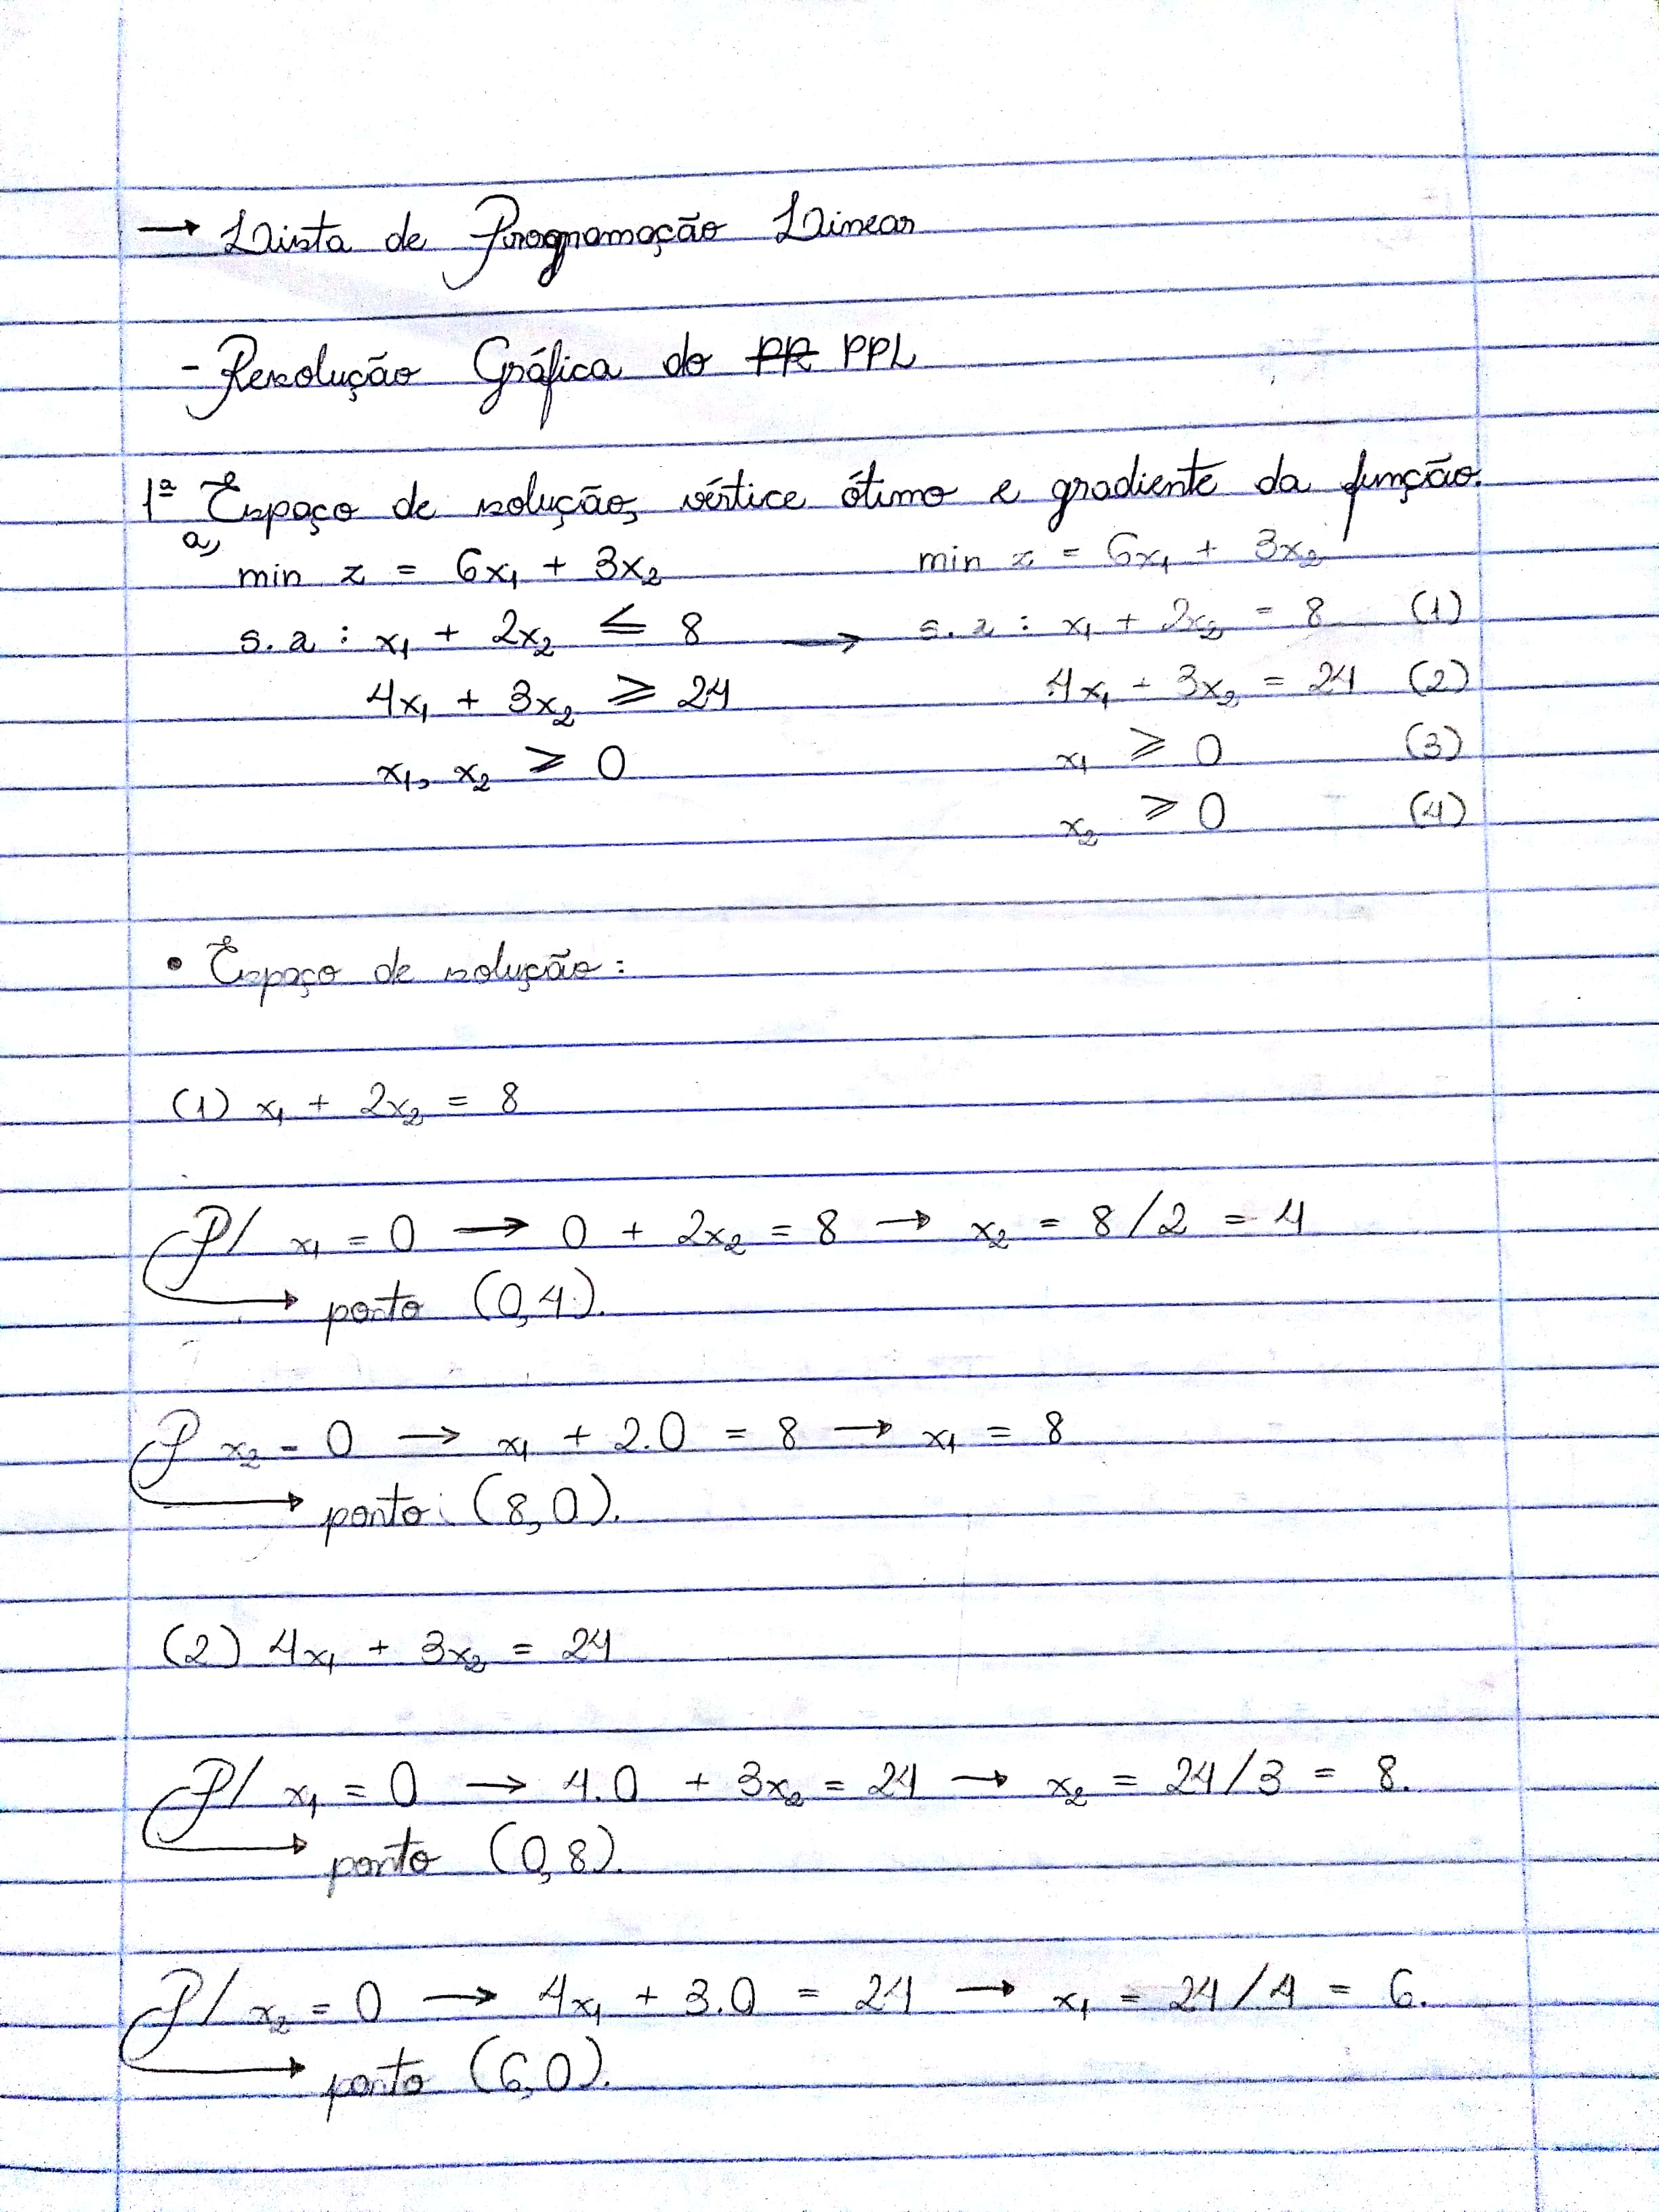 → Lista de Programação Linear
- Resolução Gráfica do PR PPL
1ª Espaço de solução, vértice ótimo e gradiente da função.
a)
min z = 6x₁ + 3x₂
s.a : x₁ + 2x₂ ≤ 8 →
4x₁ + 3x₂ ≥ 24
x₁, x₂ ≥ 0
min z = 6x₁ + 3x₂
s.a : x₁ + 2x₂ = 8 (1)
4x₁ + 3x₂ = 24 (2)
x₁ ≥ 0 (3)
x₂ ≥ 0 (4)
• Espaço de solução:
(1) x₁ + 2x₂ = 8
P/ x₁ = 0 → 0 + 2x₂ = 8 → x₂ = 8/2 = 4
→ ponto (0,4).
P x₂ = 0 → x₁ + 2.0 = 8 → x₁ = 8
→ ponto: (8,0).
(2) 4x₁ + 3x₂ = 24
P/ x₁ = 0 → 4.0 + 3x₂ = 24 → x₂ = 24/3 = 8.
→ ponto (0,8).
P/ x₂ = 0 → 4x₁ + 3.0 = 24 → x₁ = 24/4 = 6.
→ ponto (6,0).